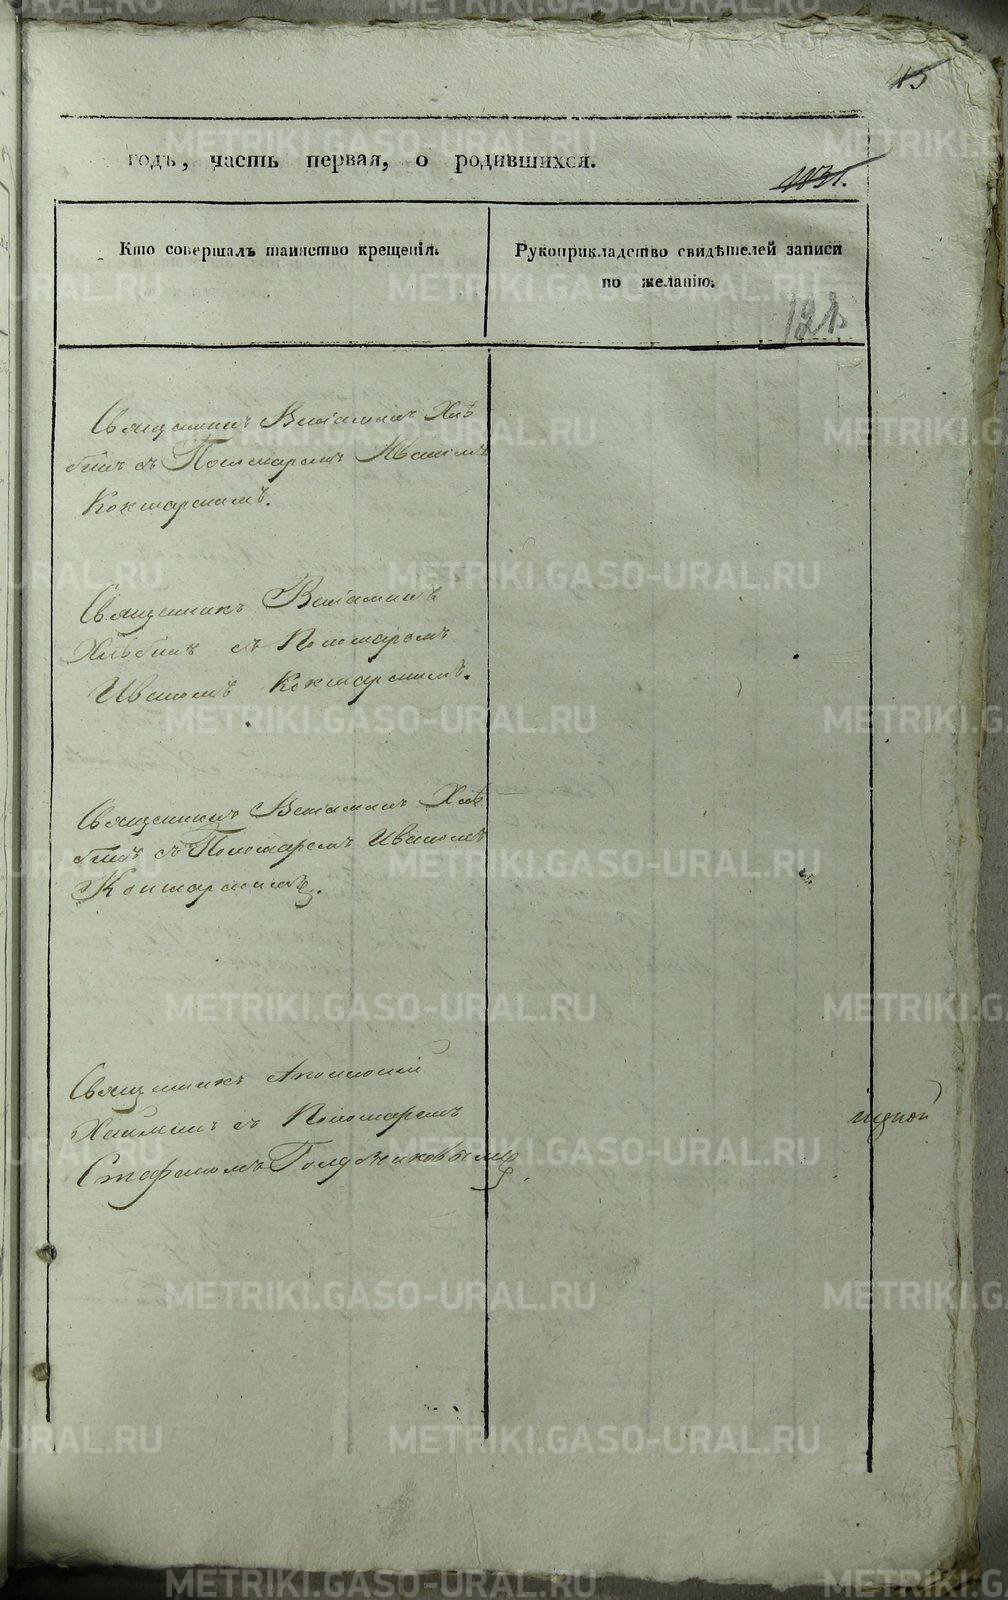 45
годъ, часть первая, о родившихся.
1131.
Кто совершалъ таинство крещенія.
Рукоприкладство свидѣтелей записи
по желанію.
121
Священникъ Веніаминъ Хлѣ
бинъ съ Пономаремъ Иваномъ
Кокшарскимъ.
Священникъ Веніаминъ
Хлѣбинъ съ Пономаремъ
Иваномъ Кокшарскимъ.
Священникъ Веніаминъ Хлѣ
бинъ съ Пономаремъ Иваномъ
Кокшарскимъ.
Священникъ Аполлоній
съ Пономаремъ
Стефаномъ
METRIKI.GASO-URAL.RU